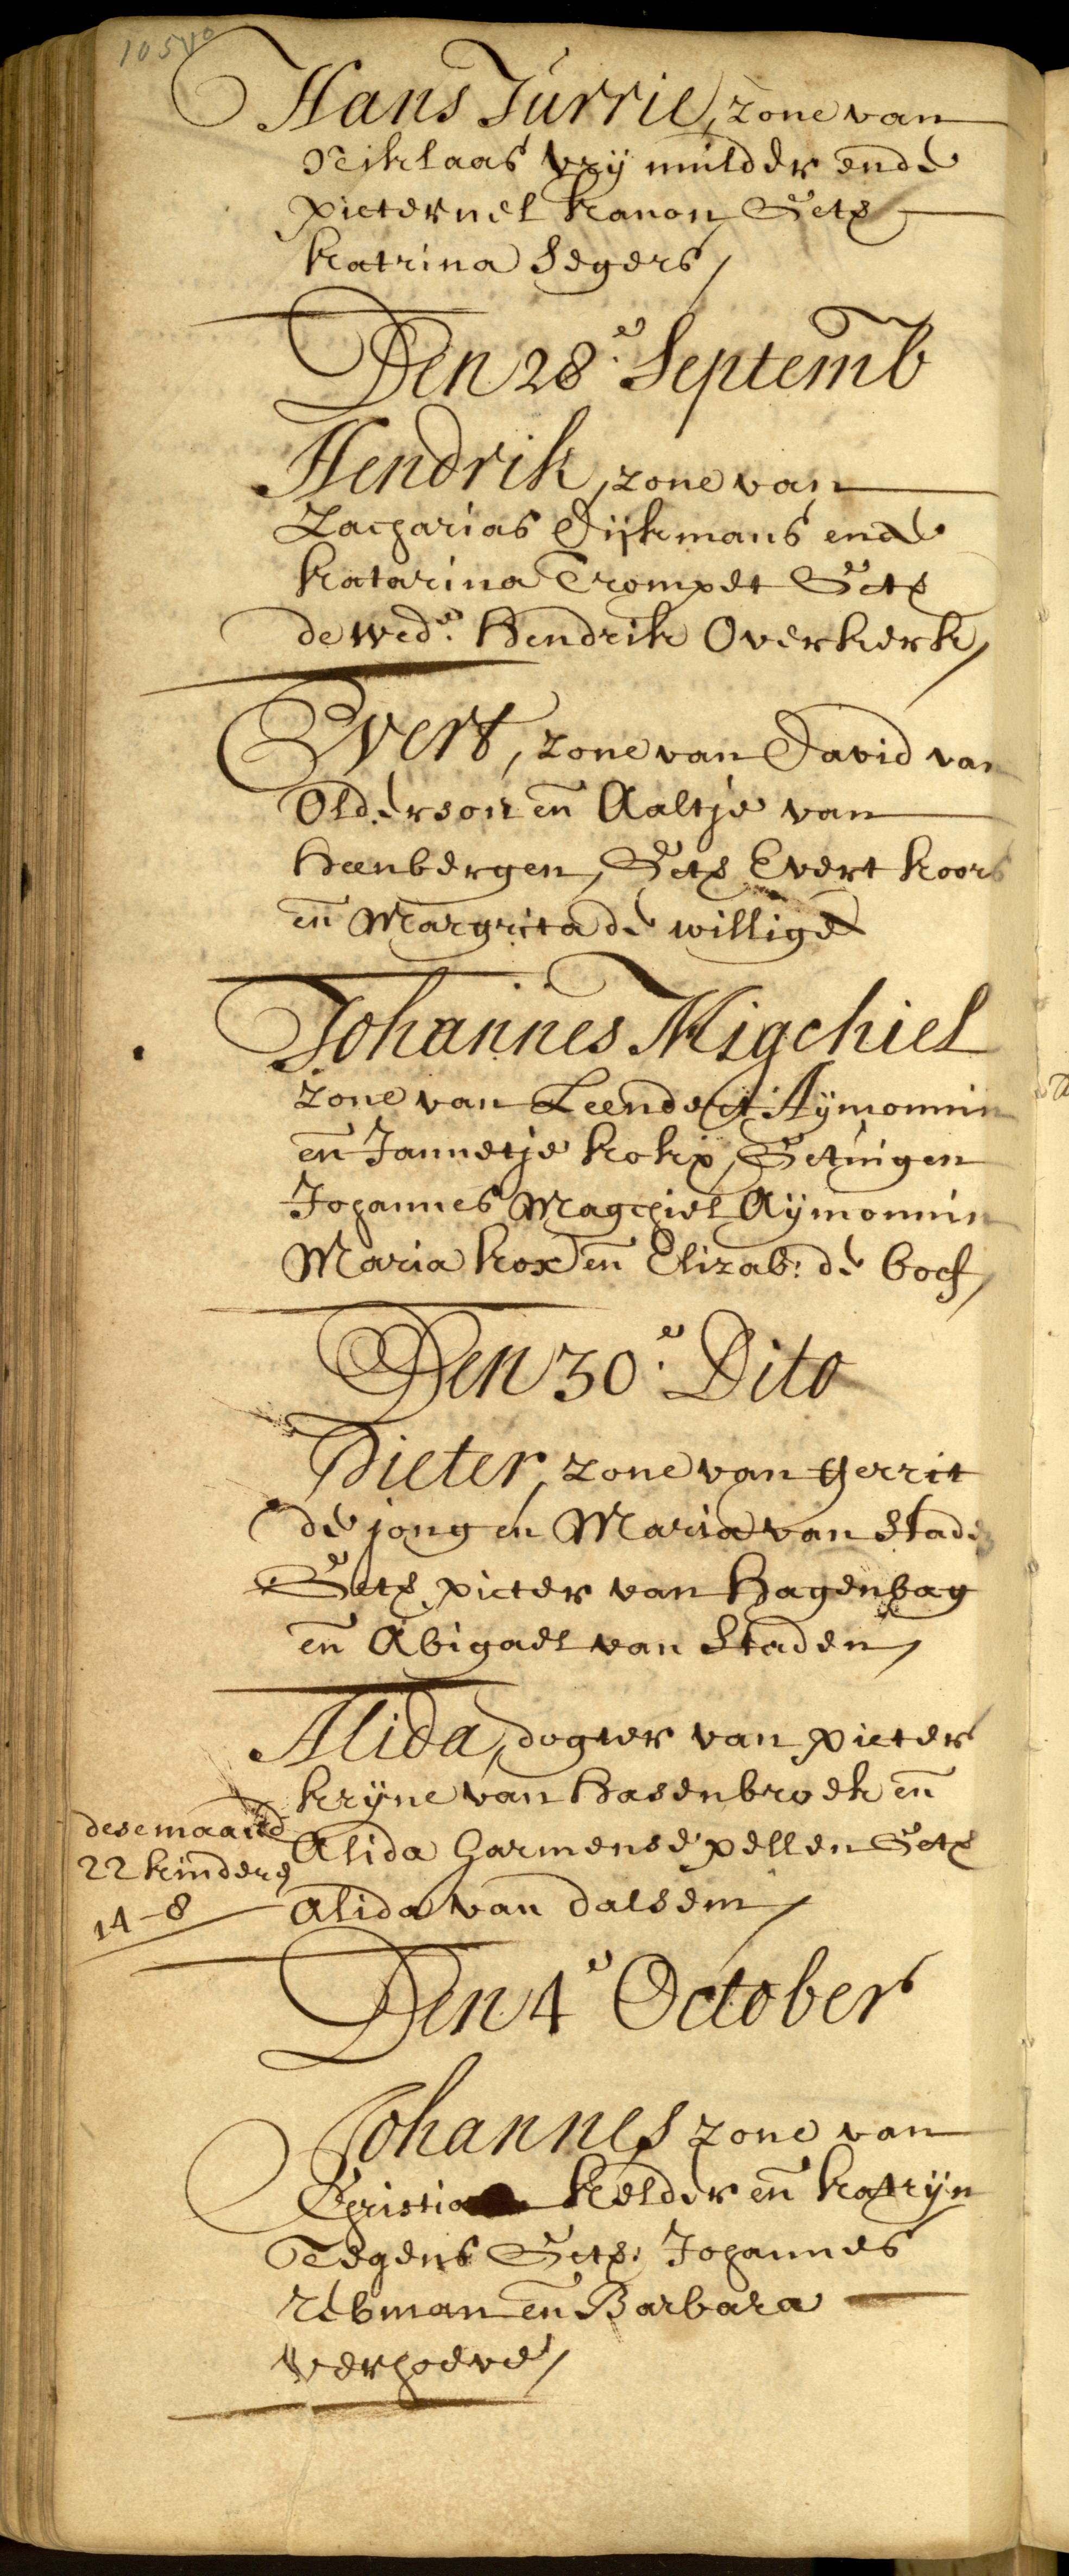 Hans Jurrie, zone van
Niklaas vry mulder ende
pieternel kanon Get?
katrina Segers /
Den 28.e Septemb
Hendrik, zone van
Zacharias Dijkmans ende
katarina Trompet Get?
de wed.e Hendrik Overkerk /
Evert, zone van David van
Olderson en Aaltje van
Heenbergen, Get? Evert koors
en Margrita de willige
Johannes Migchiel
zone van Leendert Aymonnin
en Jannetje kokx, Getuigen
Johannes Magchiel Aymonnin
Maria kox en Elizab: de boef /
Den 30.e Dito
Pieter, zone van Gerrit
de jong en Maria van Stade
Get? pieter van Hagenbag
en Abigael van Staden /
Alida, dogter van pieter
kryne van Hasenbroek en
dese maand
22 kindere
14-8
Alida Harmense pellen Get?
Alida van dalsem /
Den 4e October
Johannes zone van
Christiaan kelder en katryn
Tegens Get?: Johannes
rebman en Barbara
verhoeve /